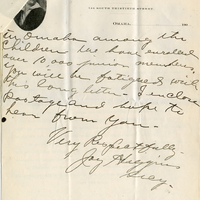 OMAHA,
in Omaha among the
children. We have enrolled
over 10 000 junior members.
you will be fatigued with
this long letter. I inclose
postage and hope to
hear from you.
Very Respectfully
Jay
Secy.